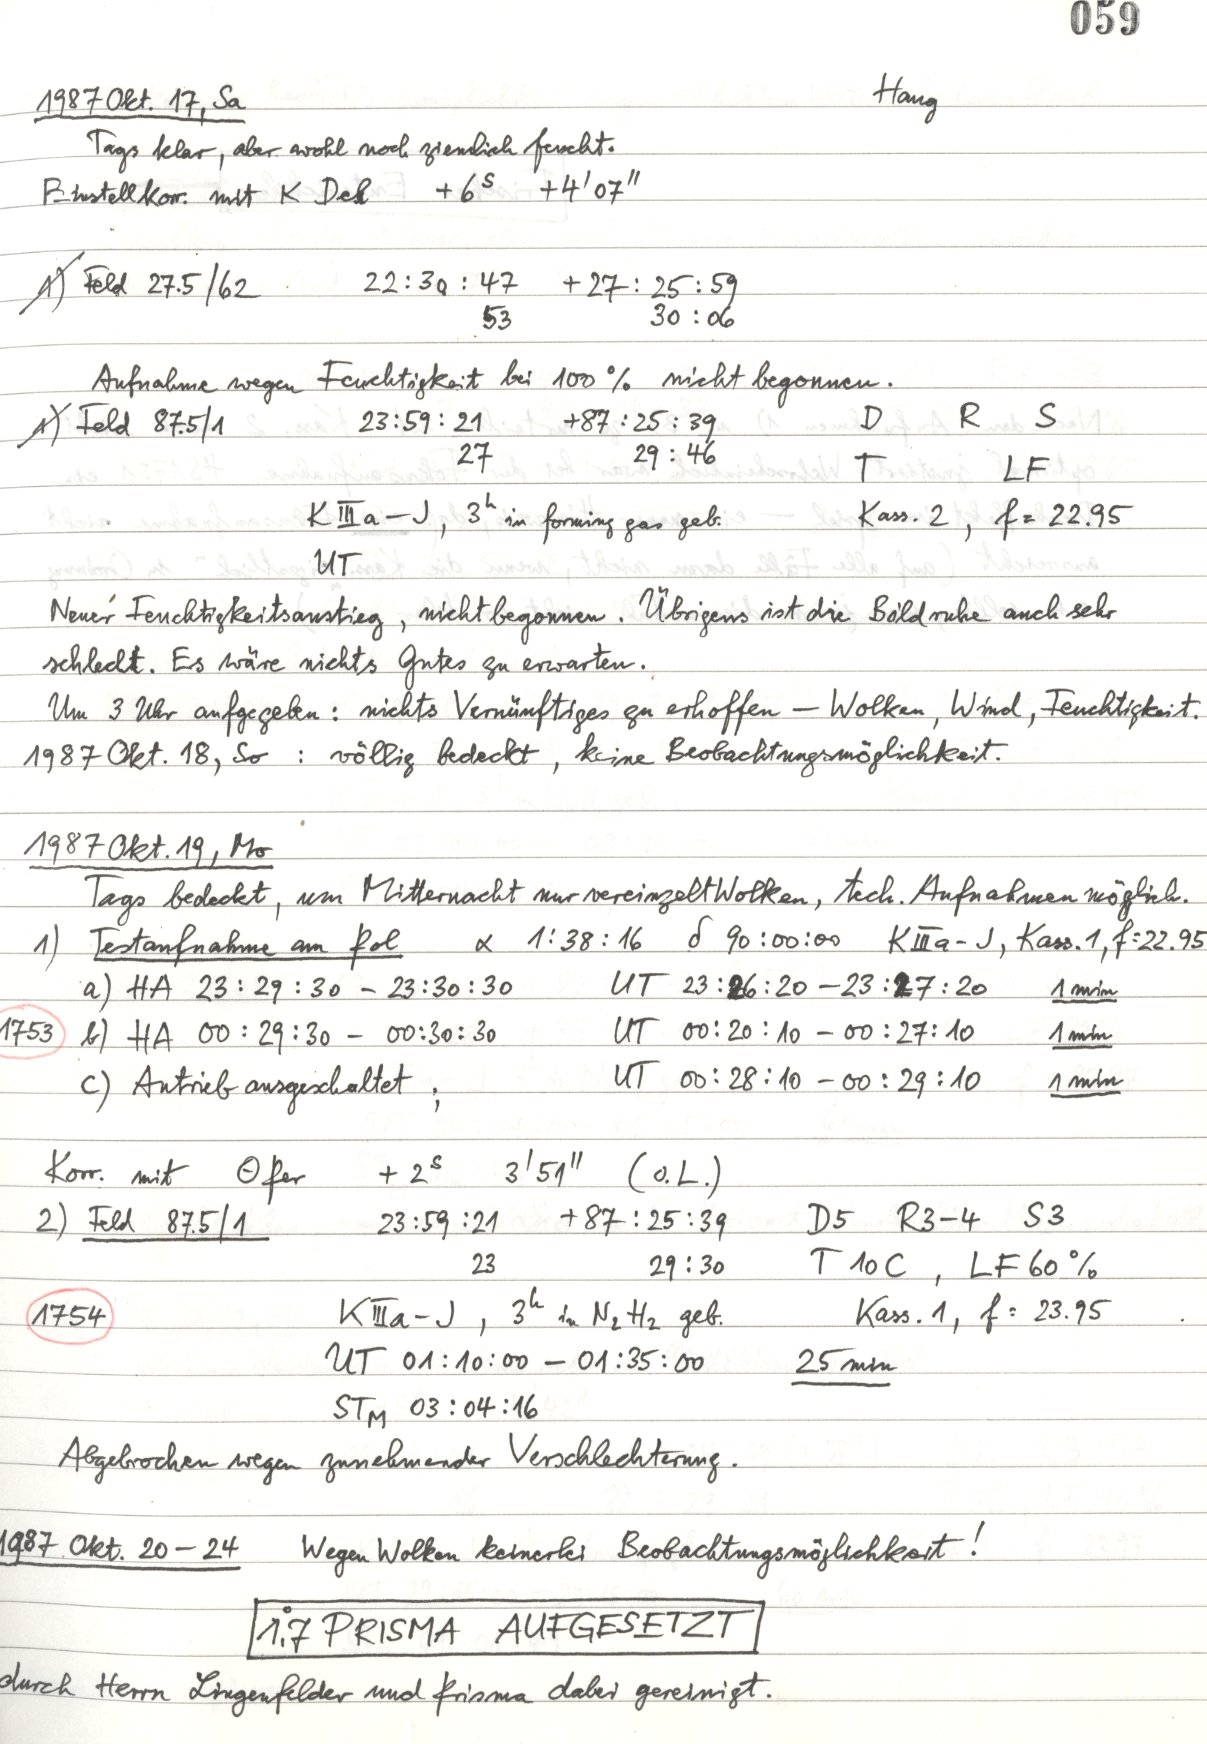 059
1987 Okt. 17, Sa Haug
Tags klar, aber wohl noch ziemlich feucht.
Einstellkorr. mit K Del +6ˢ +4'07"
1) Feld 27.5/62 22:30:47 +27:25:59
53 30:06
Aufnahme wegen Feuchtigkeit bei 100% nicht begonnen.
1) Feld 87.5/1 23:59:21 +87:25:39 D R S
27 29:46 T LF
K IIIa-J, 3ʰ in forming gas geb. Kass. 2, f = 22.95
UT
Neuer Feuchtigkeitsanstieg, nicht begonnen. Übrigens ist die Bildruhe auch sehr
schlecht. Es wäre nichts Gutes zu erwarten.
Um 3 Uhr aufgegeben: nichts Vernünftiges zu erhoffen – Wolken, Wind, Feuchtigkeit.
1987 Okt. 18, So : völlig bedeckt, keine Beobachtungsmöglichkeit.
1987 Okt. 19, Mo
Tags bedeckt, um Mitternacht nur vereinzelt Wolken, tech. Aufnahmen möglich.
1) Testaufnahme am Pol α 1:38:16 δ 90:00:00 KIIIa-J, Kass. 1, f=22.95
a) HA 23:29:30 – 23:30:30 UT 23:26:20 – 23:27:20 1 min
1753 b) HA 00:29:30 – 00:30:30 UT 00:20:10 – 00:27:10 1 min
c) Antrieb ausgeschaltet ; UT 00:28:10 – 00:29:10 1 min
Korr. mit Θ Per +2ˢ 3'51" (o.L.)
2) Feld 87.5/1 23:59:21 +87:25:39 D5 R3-4 S3
23 29:30 T 10C, LF 60%
1754 K IIIa-J, 3ʰ in N₂H₂ geb. Kass. 1, f = 23.95
UT 01:10:00 – 01:35:00 25 min
STM 03:04:16
Abgebrochen wegen zunehmender Verschlechterung.
1987 Okt. 20 – 24 Wegen Wolken keinerlei Beobachtungsmöglichkeit!
1°.7 PRISMA AUFGESETZT
durch Herrn Lingenfelder und Prisma dabei gereinigt.